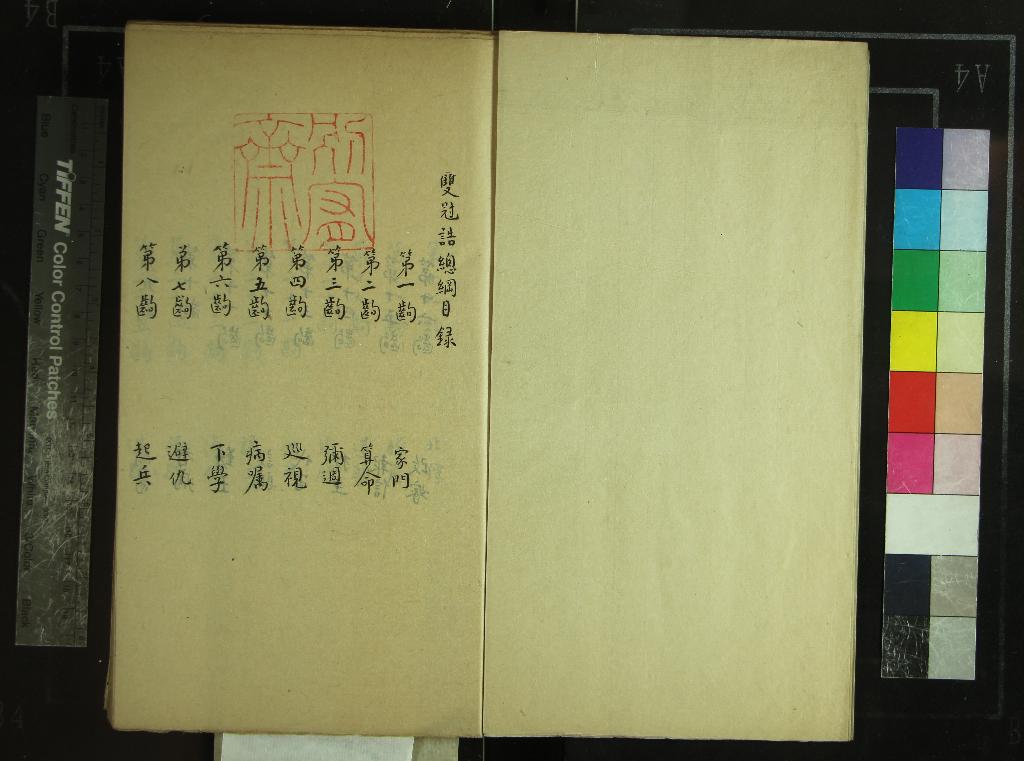 雙冠誥總綱目錄
第一齣 家門
第二齣 算命
第三齣 彌週
第四齣 巡視
第五齣 病嘱
第六齣 下學
第七齣 避仇
第八齣 起兵
TIFFEN Color Control Patches
Blue
Cyan
Green
Yellow
Red
Magenta
White
3/Color
Black
A4
B4